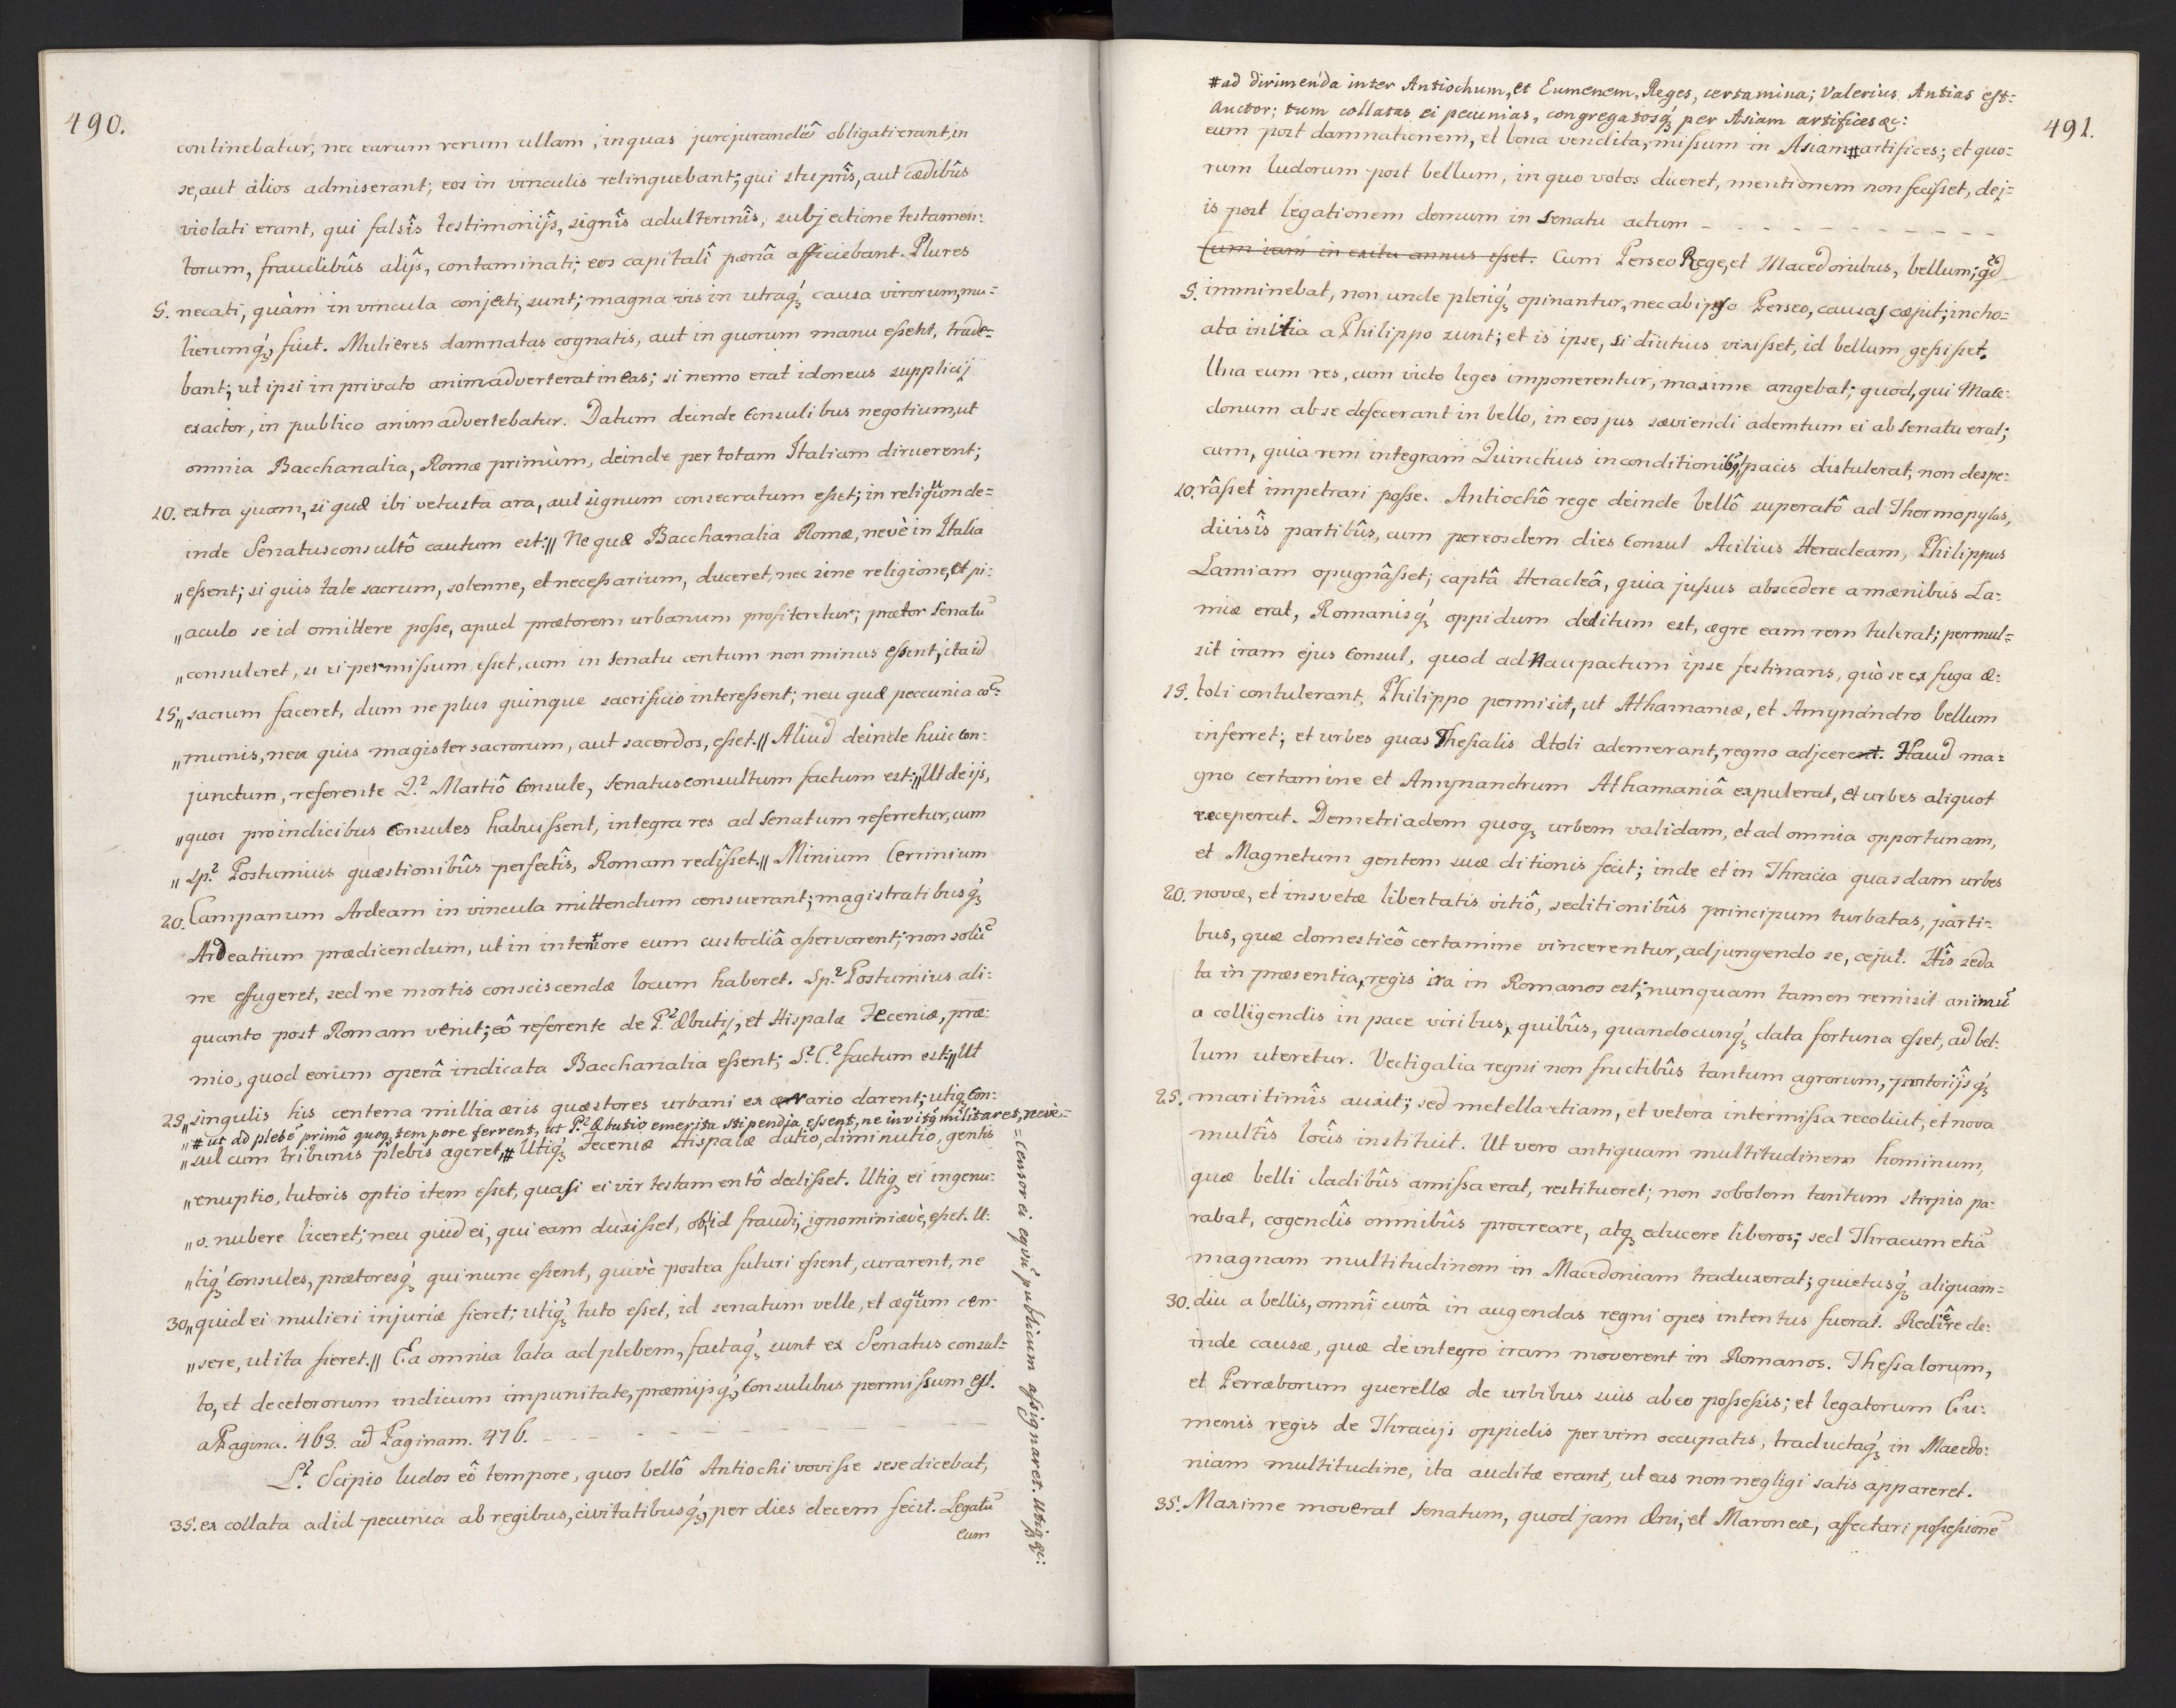 490.
continebatur, nec earum rerum ullam, in quas jurejurandô obligati erant, in
se, aut alios admiserant; eos in vinculis relinquebant; qui stuprîs, aut cædibûs
violati erant, qui falsîs testimonijs, signîs adulterinîs, subjectione testamen:
torum, fraudibûs alijs, contaminati; eos capitalî pœnâ afficiebant. Plures
5. necati, quàm in vincula conjecti, sunt; magna vis in utraq́ꝫ causa virorum, mu:
lierumq́ꝫ, fuit. Mulieres damnatas cognatis, aut in quorum manu essent, trade=
bant; ut ipsi in privato animadverterat in eas; si nemo erat idoneus supplicij
exactor, in publico animadvertebatur. Datum deinde Consulibus negotium, ut
omnia Bacchanalia, Romæ primùm, deinde per totam Italiam diruerent;
10. extra quam, si quæ ibi vetusta ara, aut signum consecratum esset; in reliqûum de=
inde Senatusconsultô cautum est: // Ne quæ Bacchanalia Romæ, nevè in Italia
"essent; si quis tale sacrum, solenne, et necessarium, duceret, nec sine religione, et pi:
"aculo se id omittere posse, apud prætorem urbanum profiteretur; prætor Senatū
"consuleret, si ei permissum esset, cum in Senatu centum non minus essent, ita id
15"sacrum faceret, dum ne plus quinque sacrificio interessent; neu quæ peccunia cō=
"munis, neu quis magister sacrorum, aut sacerdos, esset. // Aliud deinde huic con:
junctum, referente Q.² Martiô Consule, Senatusconsultum factum est: "Ut de ijs,
"quos pro indicibus Consules habuissent, integra res ad Senatum referretur, cum
"Sp.² Postumius quæstionibûs perfectîs, Romam redîsset. // Minium Cerrinium
20. Campanum Ardeam in vincula mittendum censuerant; magistratibusq́ꝫ
Ardeatium prædicendum, ut in intentiore eum custodiâ asservarent; non solū
ne effugeret, sed ne mortis consciscendæ locum haberet. Sp.² Postumius ali:
quanto post Romam venit; eô referente de P.² Æbutij, et Hispalæ Feceniæ, præ:
mio, quod eorum operâ indicata Bacchanalia essent; S.² C.² factum est: "Ut
25"singulis his centena millia æris quæstores urbani ex ærario darent; utiq́ꝫ Con:
"# ut ad plebē primô quoqꝫ tempore ferrent, ut P.² Æbutio emerita stipendia essent, ne invitꝰ militaret, neve=
"sul cum tribunis plebis ageret, # Utiq́ꝫ Feceniæ Hispalæ datio, diminutio, gentis
"enuptio, tutoris optio item esset, quasi ei vir testamentô dedisset. Utiqꝫ ei ingenu:
"o. nubere liceret; neu quid ei, qui eam duxisset, ob id fraudi, ignominiævè, esset. U:
"tiq́ꝫ Consules, prætoresq́ꝫ qui nunc essent, quivè postea futuri essent, curarent, ne
30"quid ei mulieri injuriæ fieret; utiq́ꝫ tuto esset, id senatum velle, et æqûum cen:
"sere, ut ita fieret. // Ea omnia lata ad plebem, factaq́ꝫ sunt ex Senatus consul:
to, et de ceterorum indicum impunitate, præmijsq́ꝫ, Consulibus permissum est.
a Pagina. 463. ad Paginam. 476. - - - - - - - - -
L.² Scipio ludos eô tempore, quos bellô Antiochi vovisse sese dicebat,
35. ex collata ad id pecunia ab regibus, civitatibusq́ꝫ, per dies decem fecit. Legatū
eum
= Censor ei eqvū publicum assignaret. Utiqꝫ &c:
491.
# ad dirimenda inter Antiochum, et Eumenem, Reges, certamina; Valerius Antias est:
Auctor; tum collatas ei pecunias, congregatosq́ꝫ per Asiam artifices &c:
eum post damnationem, et bona vendita, missum in Asiam # artifices; et quo:
rum ludorum post bellum, in quo votos diceret, mentionem non fecisset, de j=
is post legationem demum in Senatu actum - - - - - - - - - -
Cum iam in exitu annus esset. Cum Perseo Rege, et Macedonibus, bellum; qd
5. imminebat, non unde pleriq́ꝫ opinantur, nec ab ipso Perseo, causas cæpit; incho=
ata initia a Philippo sunt; et is ipse, si diutius vixisset, id bellum gessisset.
Una eum res, cum victo leges imponerentur, maxime angebat; quod, qui Mace:
donum ab se defecerant in bello, in eos jus sæviendi ademtum ei ab Senatu erat;
cum, quia rem integram Quinctius in conditionibꝰ pacis distulerat, non despe:
10. râsset impetrari posse. Antiochô rege deinde bellô superatô ad Thermopylas,
divisîs partibûs, cum per eosdem dies Consul Acilius Heracleam, Philippus
Lamiam opugnâsset; captâ Heracleâ, quia jussus abscedere a mœnibus La:
miæ erat, Romanisq́ꝫ oppidum deditum est, ægre eam rem tulerat; permul=
sit iram ejus Consul, quod ad Naupactum ipse festinans, quò se ex fuga Æ:
15. toli contulerant, Philippo permisit, ut Athamaniæ, et Amynandro bellum
inferret; et urbes quas Thessalis Ætoli ademerant, regno adjicerent. Haud ma=
gno certamine et Amynandrum Athamaniâ expulerat, et urbes aliquot
receperat. Demetriadem quoqꝫ urbem validam, et ad omnia opportunam,
et Magnetum gentem suæ ditionis fecit; inde et in Thracia quasdam urbes
20. novæ, et insvetæ libertatis vitiô, seditionibûs principum turbatas, parti:
bus, quæ domesticô certamine vincerentur, adjungendo se, cepit. Hîs seda
ta in præsentia, regis ira in Romanos est; nunquam tamen remisit animū
a colligendis in pace viribus, quibûs, quandocunq́ꝫ data fortuna esset, ad bel:
lum uteretur. Vectigalia regni non fructibûs tantum agrorum, portorijsq́ꝫ
25. maritimîs auxit; sed metella etiam, et vetera intermissa recoluit, et nova
multîs locîs instituit. Ut vero antiquam multitudinem hominum,
quæ belli cladibûs amissa erat, restitueret; non sobolem tantum stirpis pa:
rabat, cogendîs omnibûs procreare, atqꝫ educere liberos; sed Thracum etiā
magnam multitudinem in Macedoniam traduxerat; quietusq́ꝫ aliquam=
30. diu a bellis, omnî curâ in augendas regni opes intentus fuerat. Redîêre de:
inde causæ, quæ de integro iram moverent in Romanos. Thessalorum,
et Perræborum querellæ de urbibus suis ab eo possessis; et legatorum Eu:
menis regis de Thracijs oppidis per vim occupatis, traductaq́ꝫ in Macedo:
niam multitudine, ita auditæ erant, ut eas non negligi satis appareret.
35. Maxime moverat Senatum, quod jam Æni, et Maroneæ, affectari possessionē